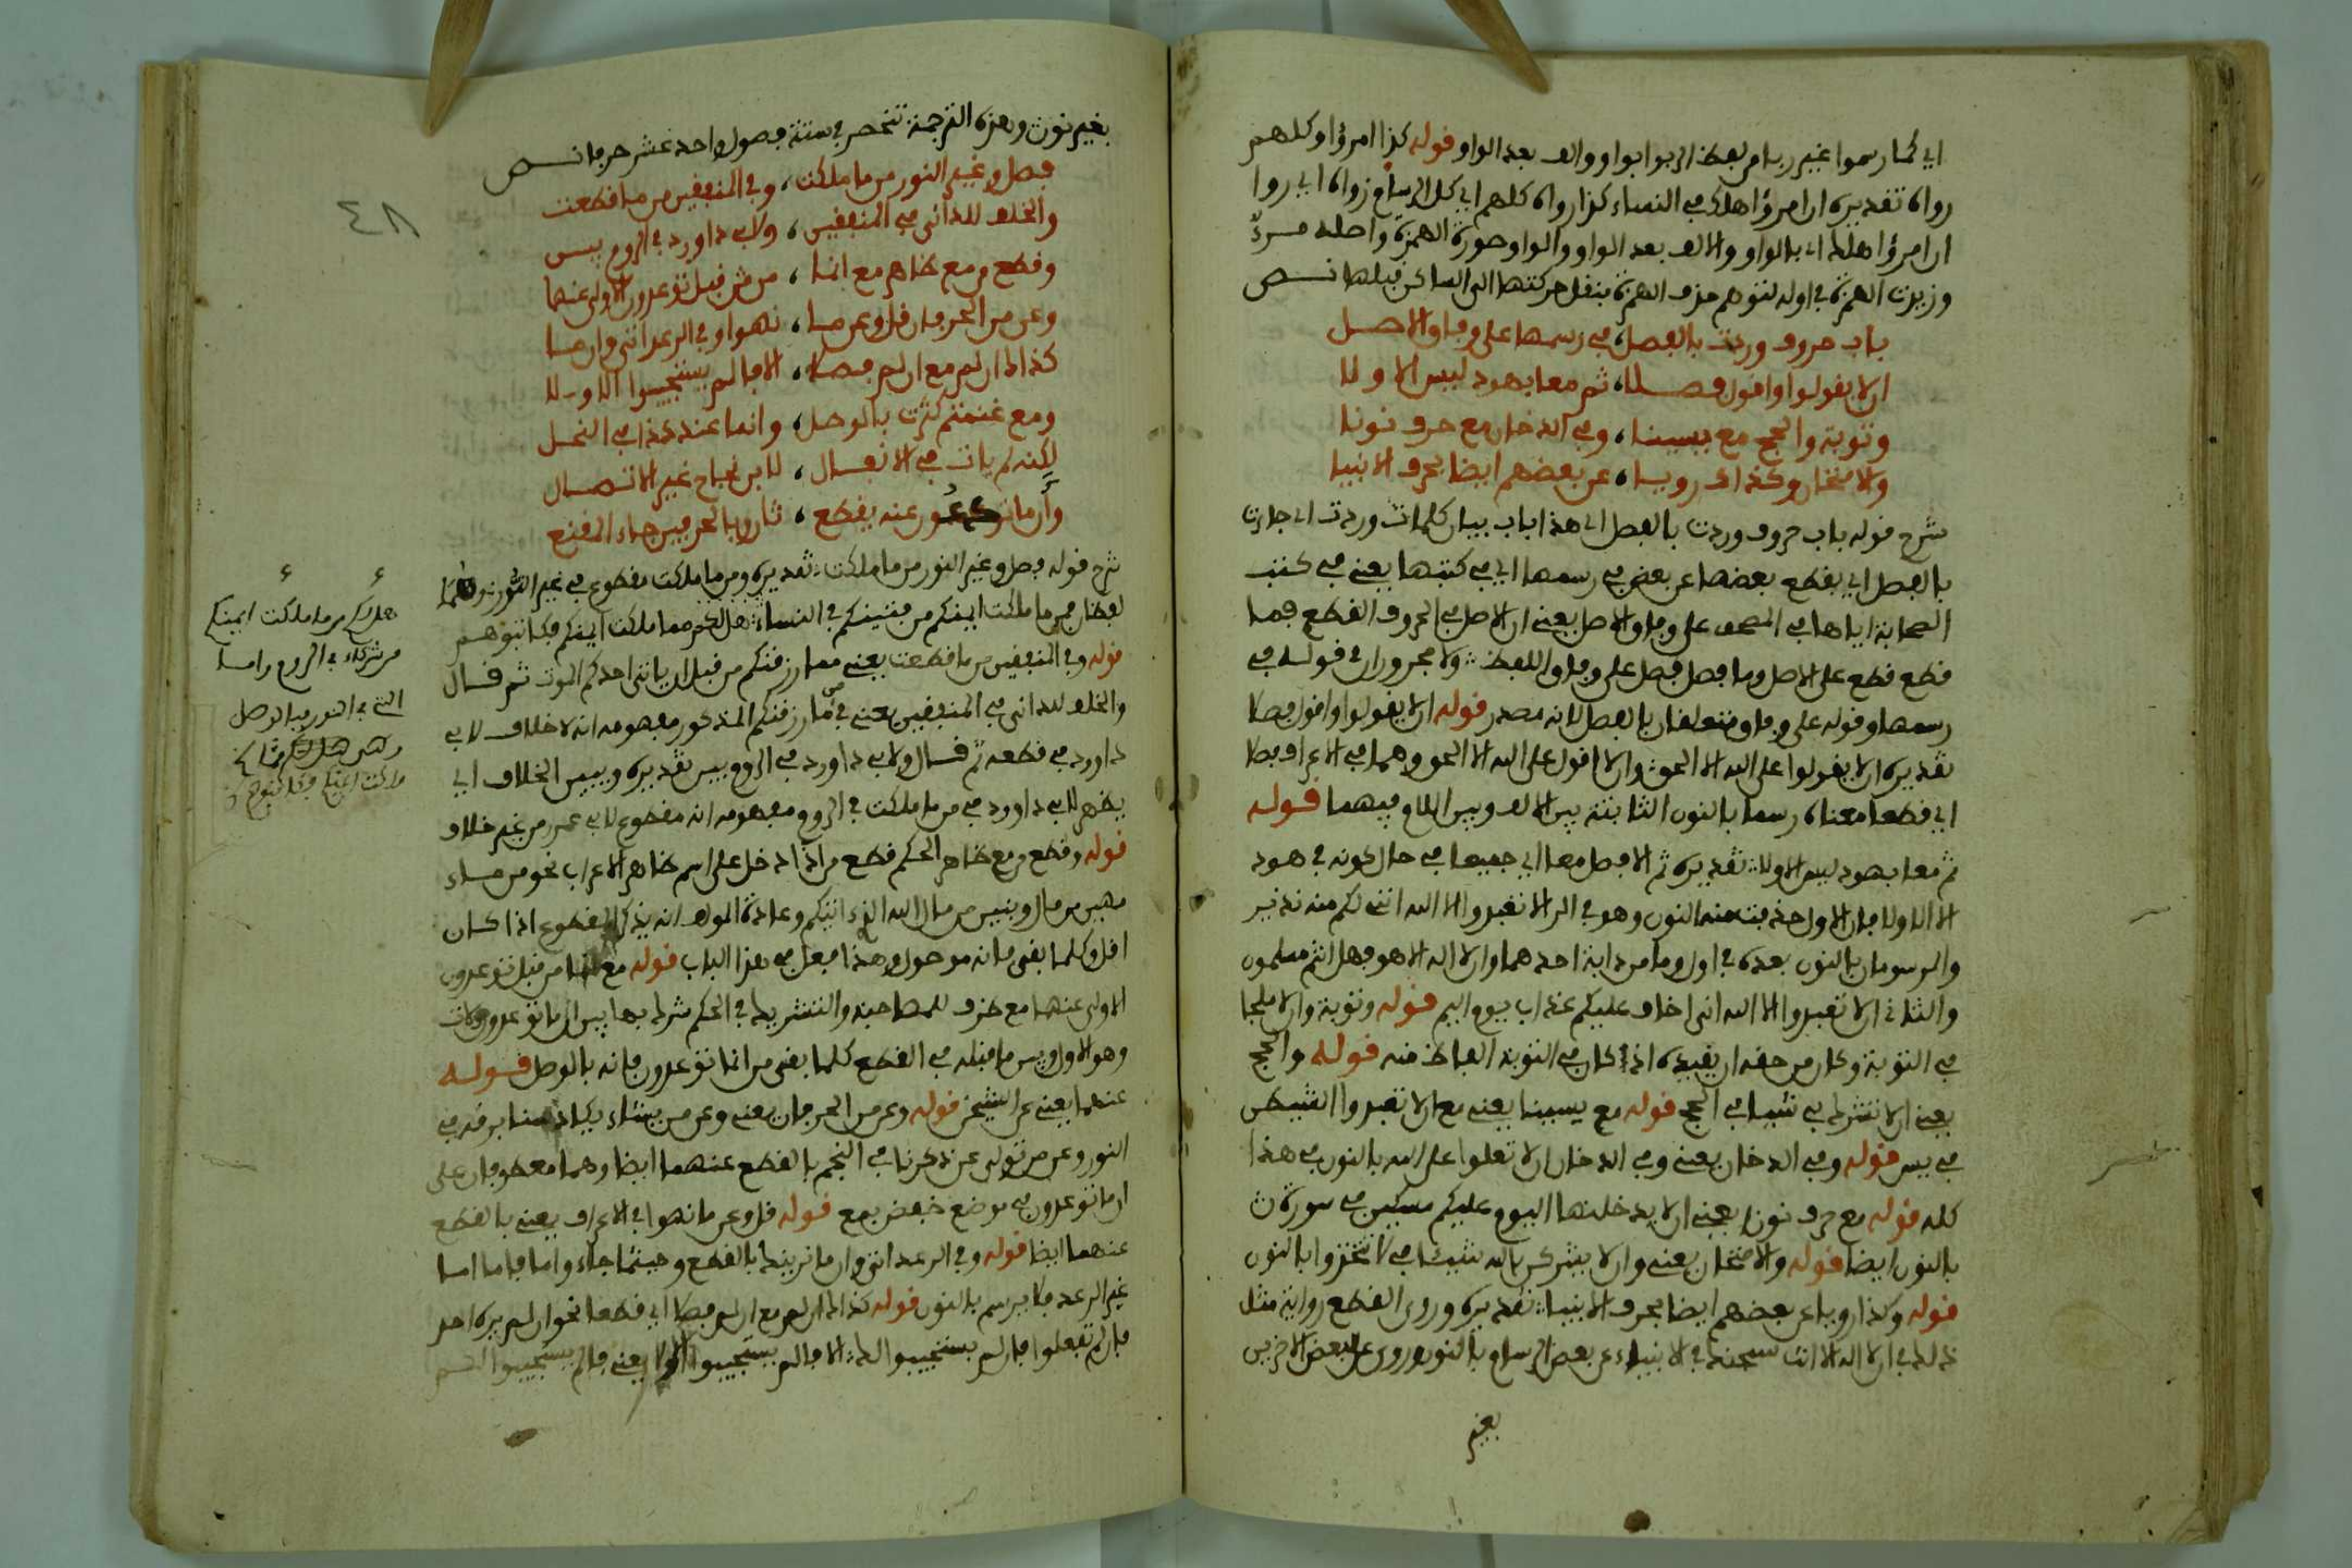 اي كما رسموا غير ربا من لفظ الربوا بواو والف بعد الواو قوله كذا امرؤا وكلهم
رواه تقديره ان امرؤا هلك في النساء كذا رواه كلهم اي كل الرسام رواه اي رووا
ان امرؤا هلك اي بالواو والالف بعد الواو والواو صورة الهمزة واصله مرء
وزيدت الهمزة في اوله لتوهم حذف الهمزة بنقل حركتها الى الساكن قبلها نص
باب حروف وردت بالفصل، في رسمها على وفاق الاصل
ان لا يقولوا واقول فصلا، ثم معا بهود ليس الاولا
وتوبة والحج مع يسينا، وفي الدخان مع حرف نونا
والامتحان وكذاك رويا، عن بعضهم ايضا بحرف الانبيا
شرح قوله باب حروف وردت بالفصل اي هذا باب بيان كلمات وردت اي جاءت
بالفصل اي بقطع بعضها عن بعض في رسمها اي في كتبها يعني في كتب
الصحابة اياها في المصحف على وفاق الاصل يعني ان الاصل في الحروف القطع فما
قطع قطع على الاصل وما فصل فصل على وفاق اللفظ ولا مجروران في قوله في
رسمها وقوله على وفاق متعلقان بالفصل لانه مصدر قوله ان لا يقولوا واقول فصلا
تقديره ان لا يقولوا على الله الا الحق وان لا اقول على الله الا الحق وهما في الاعراف فصلا
اي قطعا معناه رسما بالنون الثابتة بين الالف وبين اللام فيهما قوله
ثم معا بهود ليس الاولا تقديره ثم الا فصل معا اي جميعا في حال كونه في هود
الا الاولا فان الاول حذفت منه النون وهو في الر الا تعبدوا الا الله انني لكم منه نذير
والمرسومان بالنون بعده في اول وما من دابة احدهما وان لا اله الا هو فهل انتم مسلمون
والثاني ان لا تعبدوا الا الله اني اخاف عليكم عذاب يوم اليم قوله وتوبة وان لا ملجا
في التوبة وكان من حقه ان يقيده اذ كان في التوبة الفاظ منه قوله والحج
يعني ان لا تشرك بي شيئا في الحج قوله مع يسينا يعني مع ان لا تعبدوا الشيطن
في يس قوله وفي الدخان يعني وفي الدخان ان لا تعلوا على الله بالنون في هذا
كله قوله مع حرف نون يعني ان لا يدخلنها اليوم عليكم مسكين في سورة ن
بالنون ايضا قوله والامتحان يعني وان لا يشركن بالله شيئا في لا تتخذوا بالنون
قوله وكذا رويا عن بعضهم ايضا بحرف الانبيا تقديره وروي القطع رواية مثل
ذلك في ان لا اله الا انت سبحنك في الانبياء عن بعض الرسام بالنون وروي عن البعض الاخرين
يعني
بغير نون وهذه الترجمة تنحصر في ستة فصول واحد عشر حرفا نص
فصل وغير النور من ما ملكت، وفي المنفقين من ما قطعت
والخلف للداني في المنفقين، ولابي داوود في الروم يبين
وقطع من مع ظاهر مع انما، من قبل توعدون الاولى عنهما
وعن من الحرفان قل وعن ما، نهوا وفي الرعد اتى وان ما
كذاك ان لم مع ان لم فصلا، الا فالم يستجيبوا الاولا
ومع غنمتم كثرت بالوصل، وانما عند كذا في النحل
لكنه لم يات في الانفال، لابن نجاح غير الاتصال
وان ما توعدون عنه يقطع، ثان وبالحرفين جاء المقنع
شرح قوله فصل وغير النور من ما ملكت تقديره ومن ما ملكت مقطوع في غير النور نحو
لفظان من ما ملكت ايمنكم من فتيتكم في النساء هل لكم مما ملكت ايمنكم
قوله وفي المنفقين من ما قطعت يعني مما رزقنكم من قبل ان ياتي احدكم الموت ثم قال
والخلف للداني في المنفقين يعني في مما رزقنكم المذكور مفهومه انه لا خلاف لابي
داوود في قطعه ثم قال ولابي داوود في الروم يبين تقديره ويبين الخلاف اي
يظهر لابي داوود في من ما ملكت في الروم ومفهومه انه مقطوع لابي عمرو من غير خلاف
قوله وقطع من مع ظاهر الحكم قطع من اذا دخل على اسم ظاهر الاعراب نحو من ماء
مهين من مال وبنين من مال الله الذي اتيكم وعادة المؤلف انه يذكر المقطوع اذا كان
اقل وكلما بقي فانه موصول وهكذا فعل في هذا الباب قوله مع انما من قبل توعدون
الاولى عنهما مع ظرف للمصاحبة والتشريك في الحكم شرك بها بين ان ما توعدون لات
وهو الاول وبين ما قبله في القطع كلما بقي من انما توعدون فانه بالوصل قوله
عنهما يعني عن الشيخين قوله وعن من الحرفان يعني وعن من يشاء يكاد سنا برقه في
النور وعن من تولى عن ذكرنا في النجم بالقطع عنهما ايضا وهما معطوفان على
ان ما توعدون في موضع خفض بمع قوله قل وعن ما نهوا في الاعراف يعني بالقطع
عنهما ايضا قوله وفي الرعد اتى وان ما نرينك بالقطع وحيثما جاء واما فاما اما
غير الرعد فلا يرسم بالنون قوله كذاك ان لم مع ان لم فصلا اي قطعا نحو ان لم يره احد
فان لم تفعلوا فان لم يستجيبوا لك الا فالم يستجيبوا الاولا يعني فالم يستجيبوا لكم
٤٨
هل لكم من ما ملكت ايمنكم
من شركاء في الروم واما
التي في النور فبالوصل